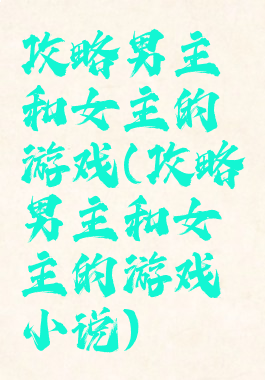 攻略男主
和女主的
游戏(攻略
男主和女
主的游戏
小说)